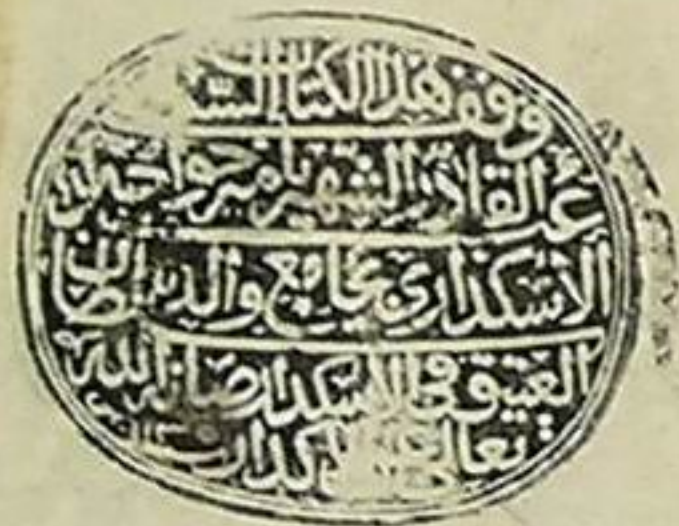 وقف هذا الكتاب
عبد القادر الشهير بامير خواجه
الأسكداري بجامع والده سلطان
العتيق في الاسكدار صانه الله
تعالى